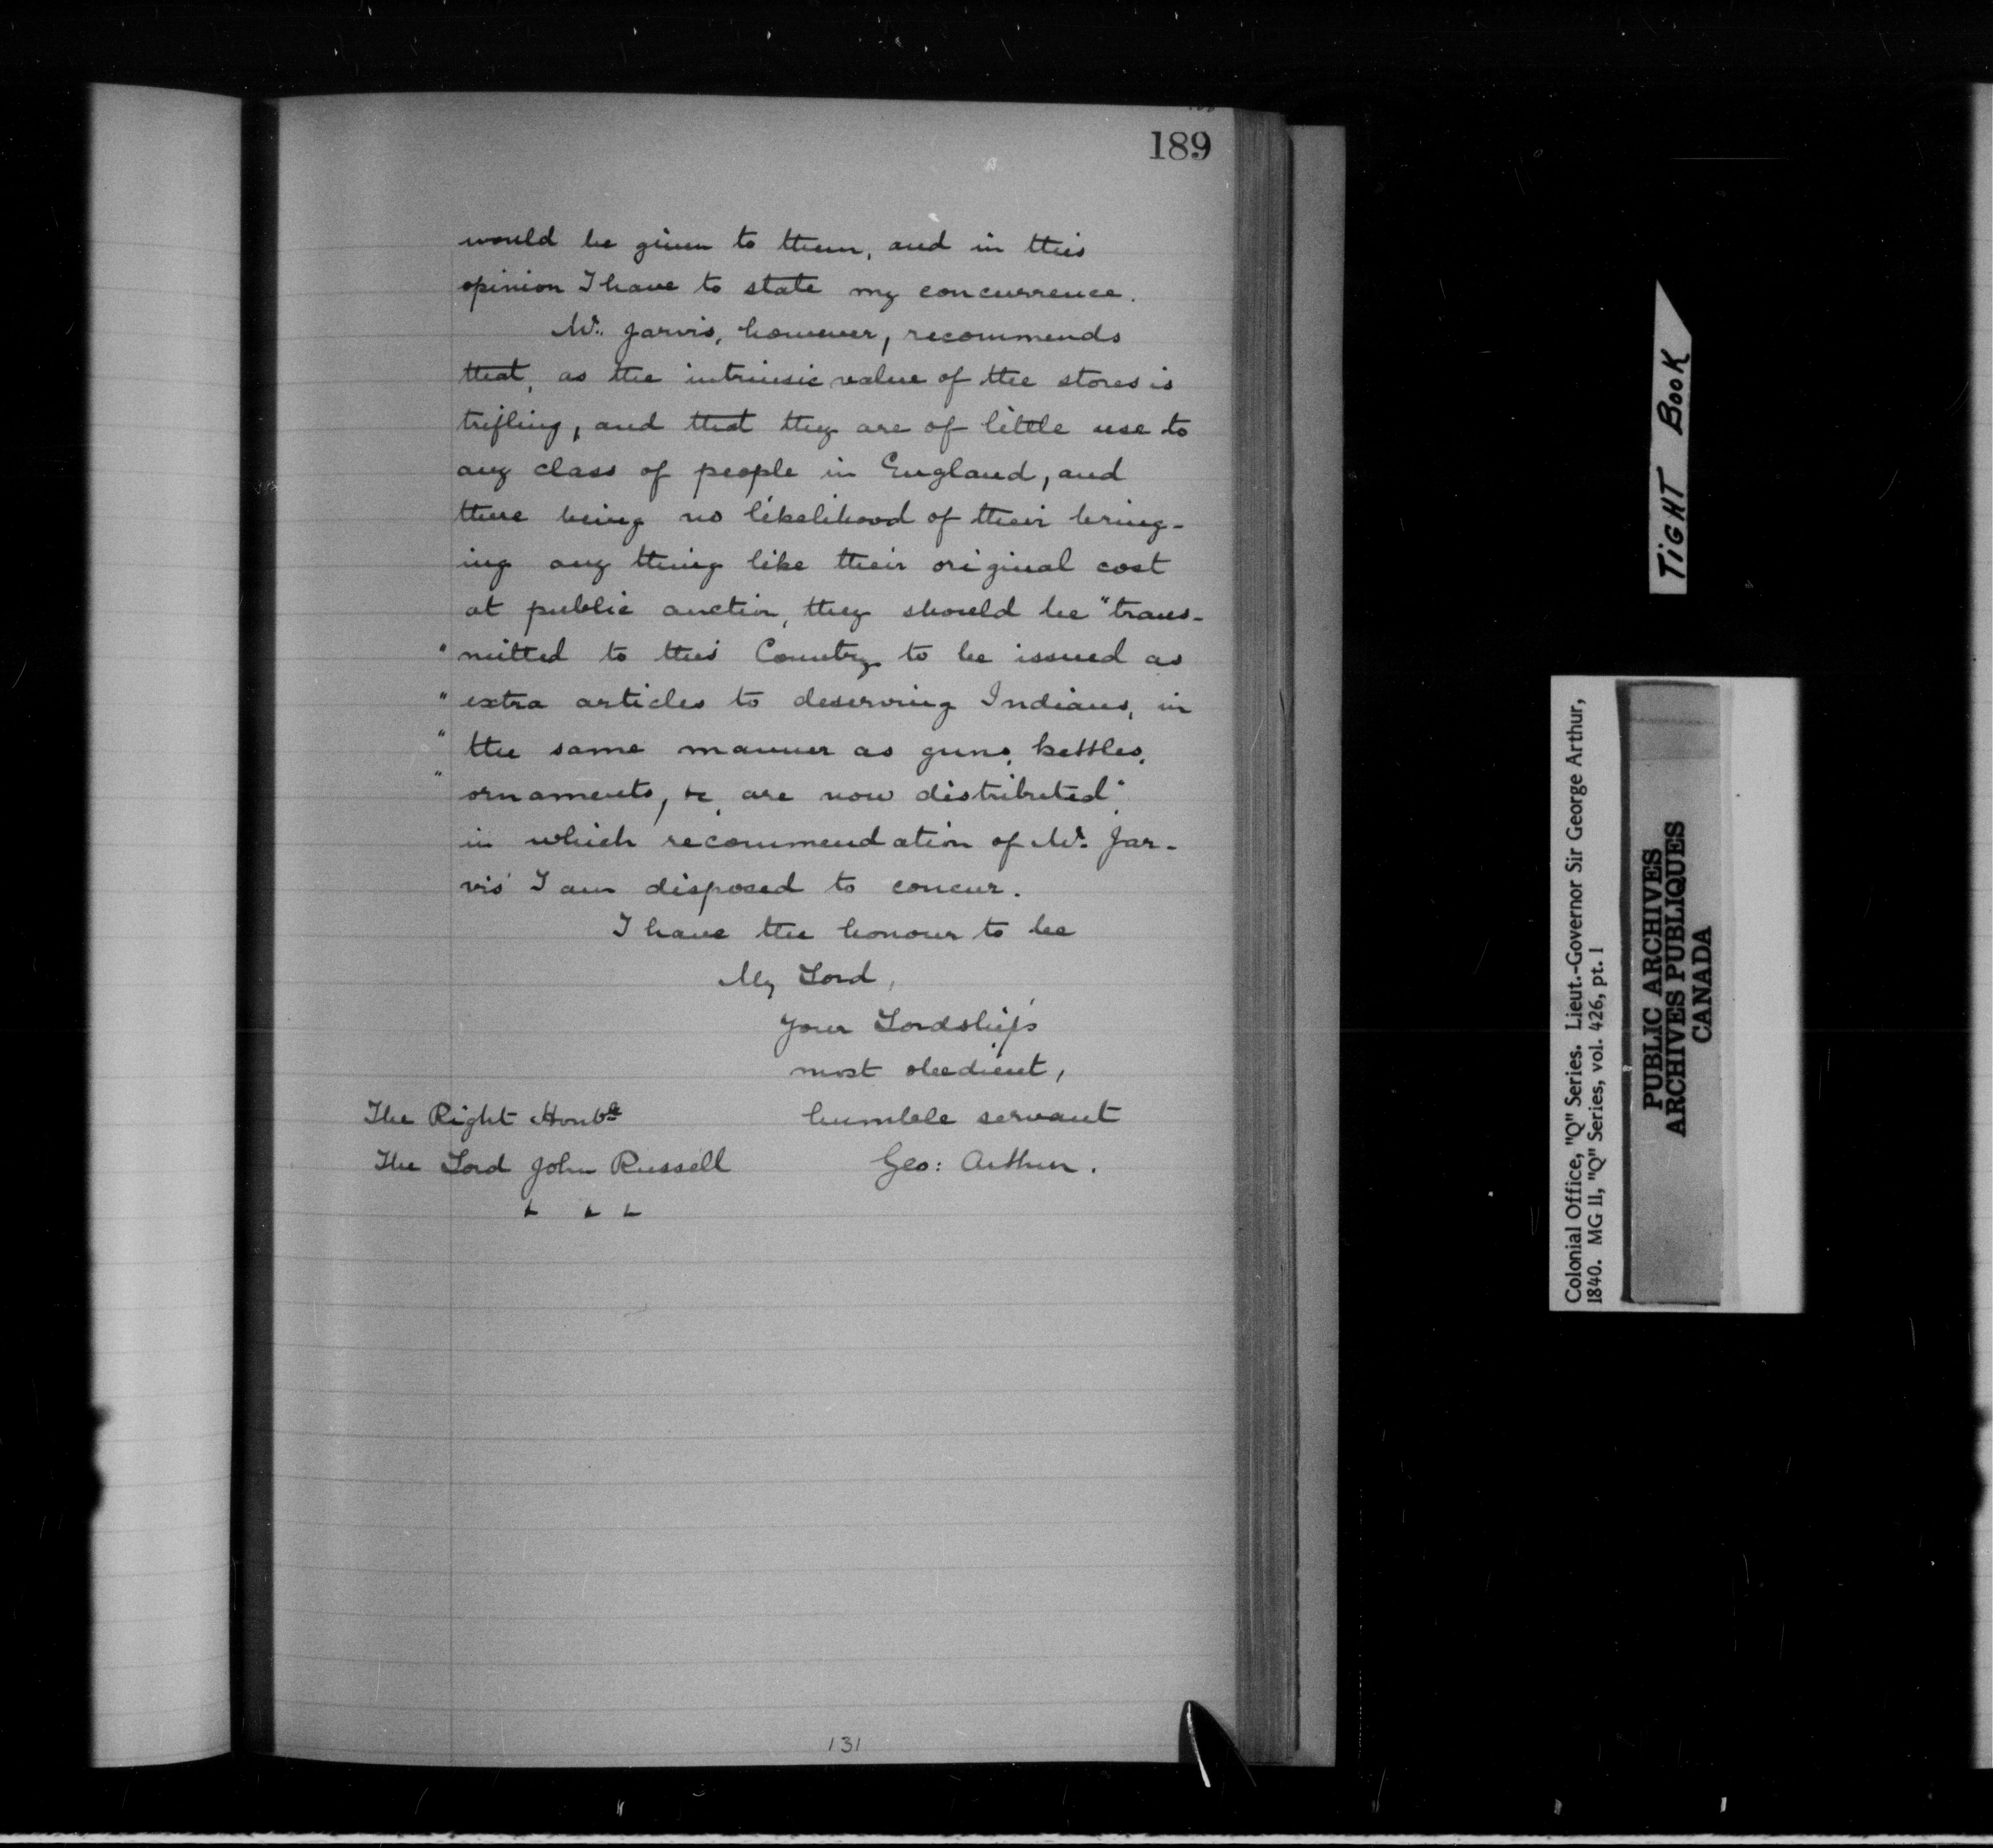 189
would be given to them, and in this
opinion I have to state my concurrence.
Mr. Jarvis, however, recommends
that, as the intrinsic value of the stores is
trifling, and that they are of little use to
any class of people in England, and
there being no likelihood of their bring-
ing any thing like their original cost
at public auction, they should be "trans-
" mitted to this Country to be issued as
" extra articles to deserving Indians, in
" the same manner as guns, kettles,
" ornaments, &c, are now distributed"
in which recommendation of Mr. Jar-
vis I am disposed to concur.
I have the honour to be
My Lord,
Your Lordship's
most obedient,
humble servant
Geo: Arthur.
The Right Honble
The Lord John Russell
& & &
131
TIGHT BOOK
Colonial Office, "Q" Series. Lieut.-Governor Sir George Arthur,
1840. MG 11, "Q" Series, vol. 426, pt. 1
PUBLIC ARCHIVES
ARCHIVES PUBLIQUES
CANADA